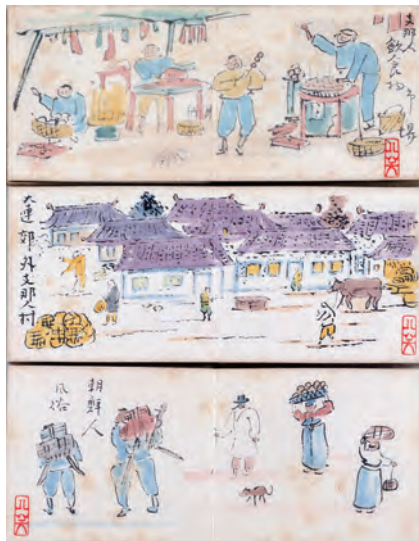 支那人
飲食物市場
大連郊外支那人村
朝鮮人
風俗